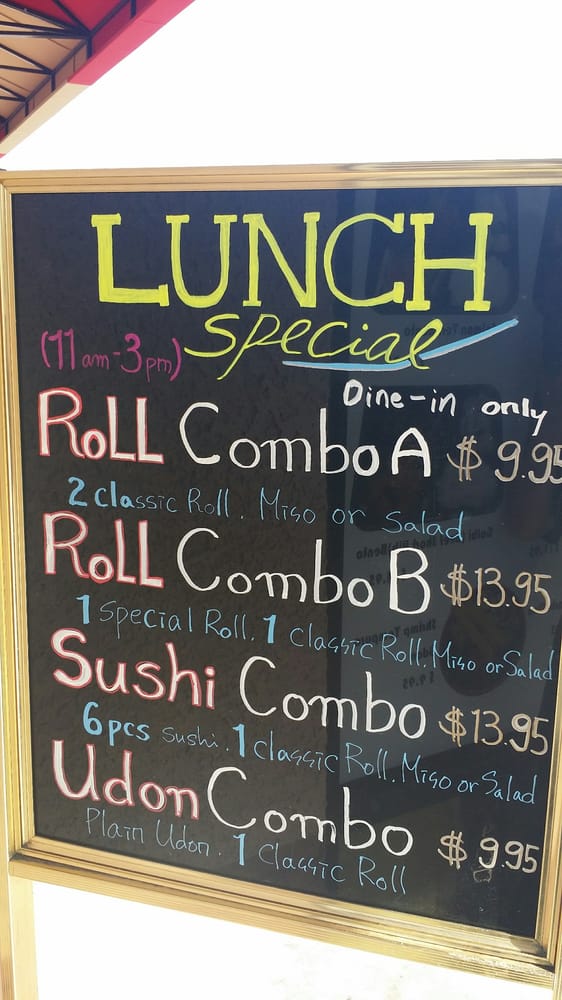 LUNCH
Special
(11am-3pm)
Dine-in only
RoLL Combo A $9.95
2 classic Roll. Miso or Salad
RoLL Combo B $13.95
1 Special Roll. 1 Classic Roll. Miso or Salad
Sushi Combo $13.95
6pcs sushi. 1 classic Roll. Miso or Salad
Udon Combo $9.95
Plain Udon. 1 Classic Roll